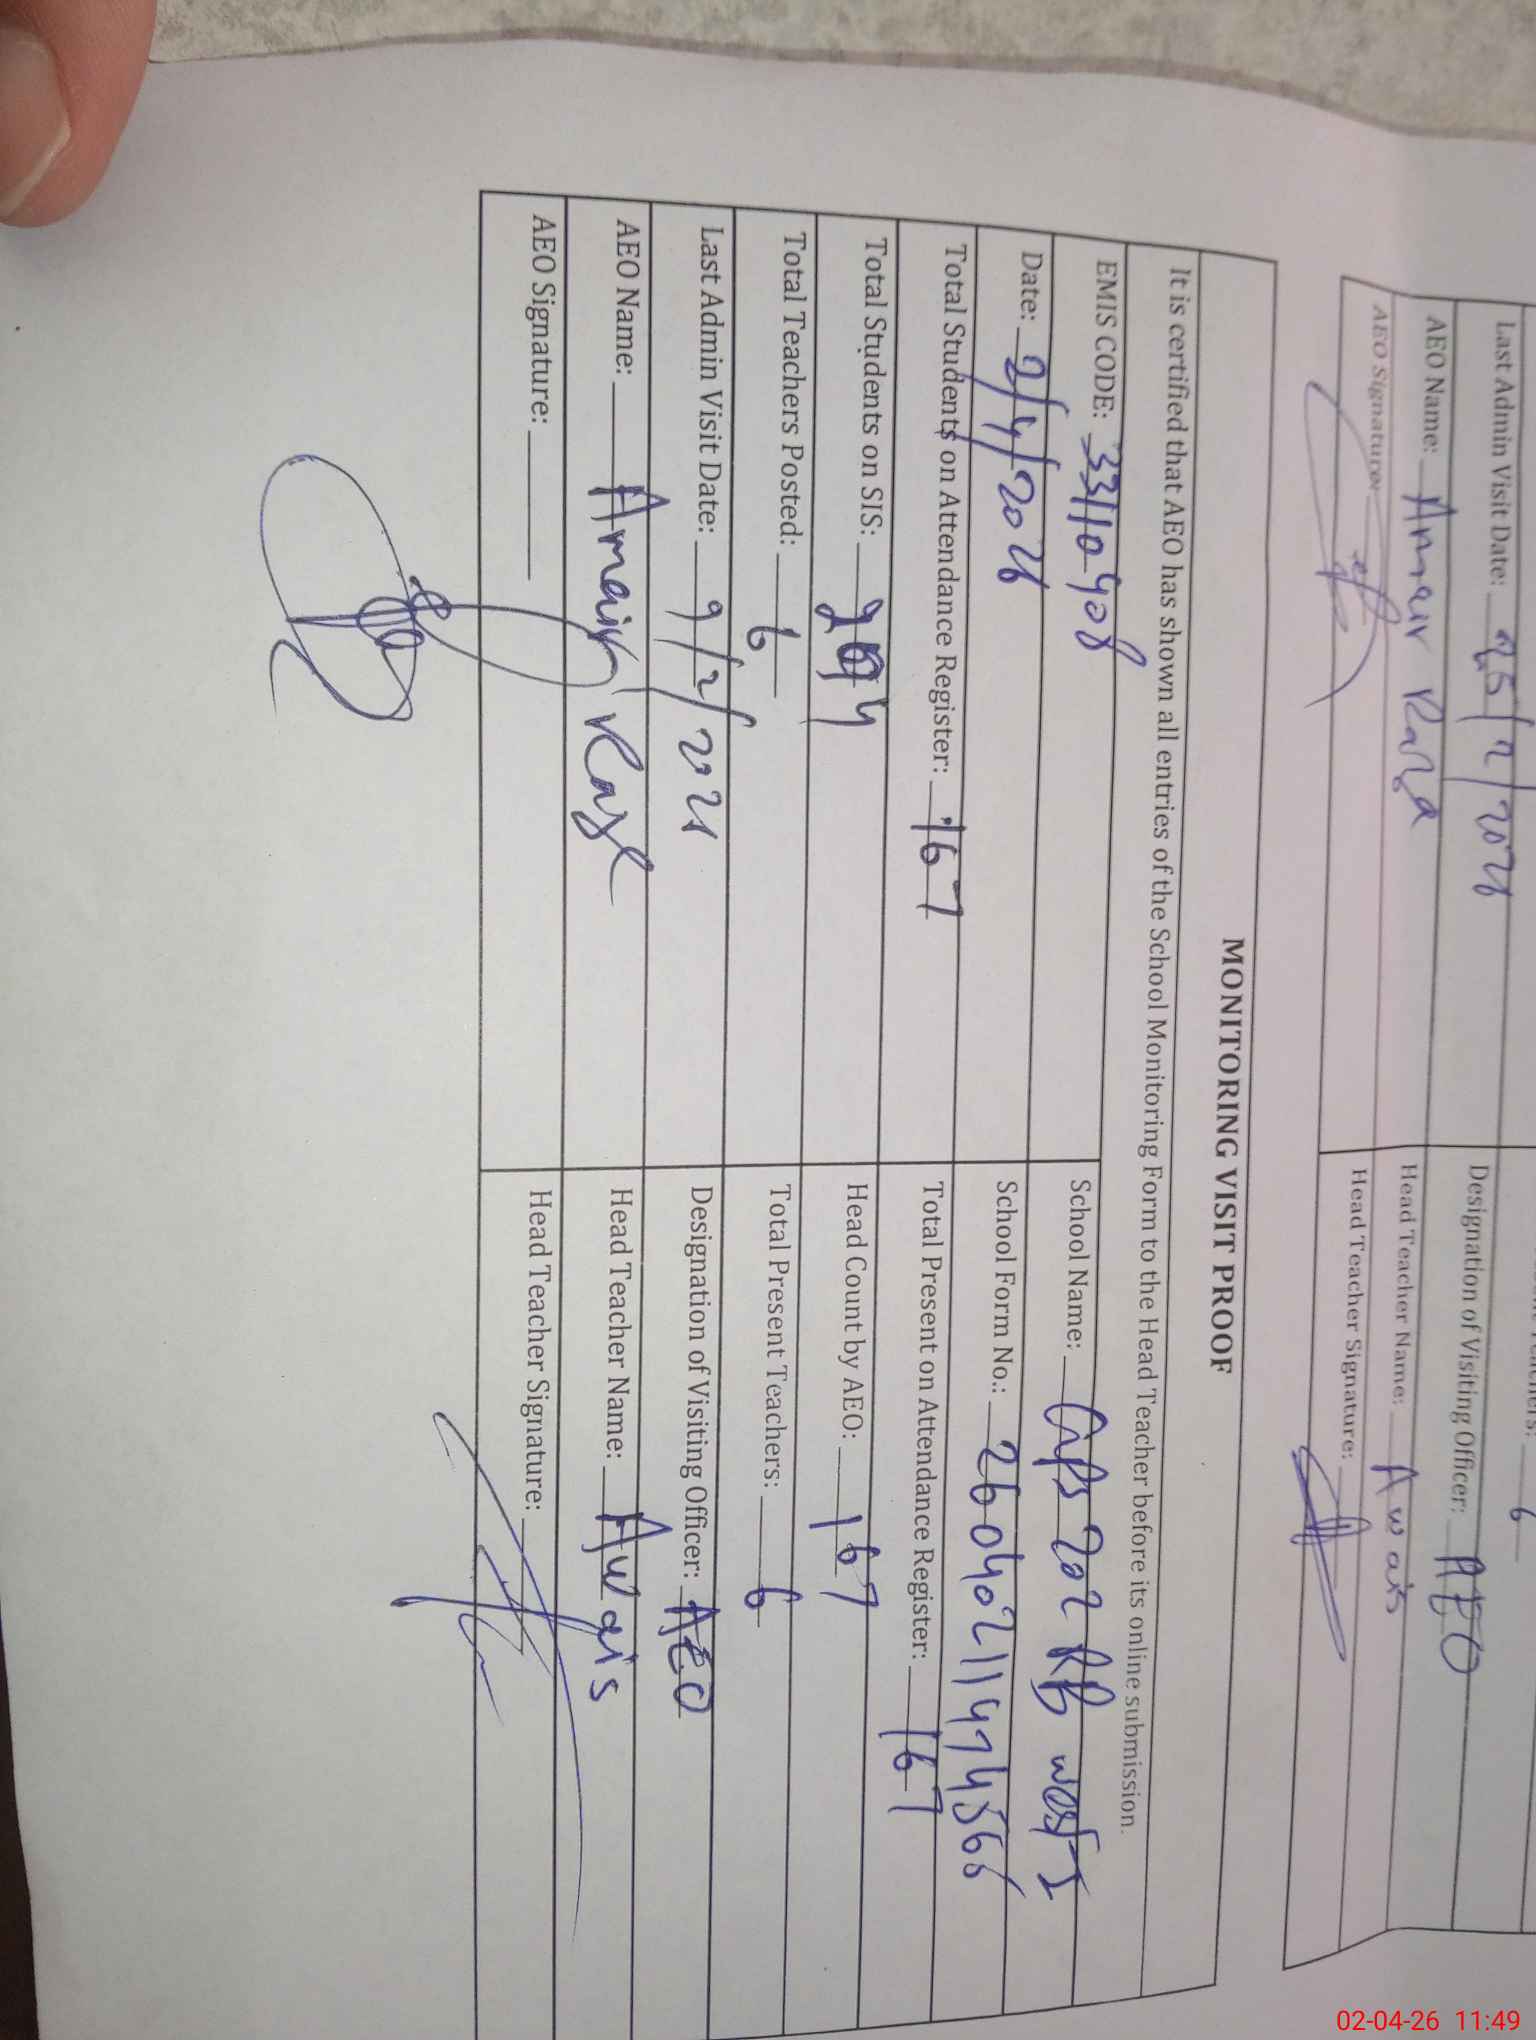 Last Admin Visit Date: 25/2/2026 Designation of Visiting Officer: AEO
AEO Name: Amair Raza Head Teacher Name: Awais
AEO Signature: Head Teacher Signature:
MONITORING VISIT PROOF
It is certified that AEO has shown all entries of the School Monitoring Form to the Head Teacher before its online submission.
EMIS CODE: 33110408 School Name: GPS 202 RB West I
Date: 2/4/2026 School Form No.: 26040211474566
Total Students on Attendance Register: 167 Total Present on Attendance Register: 167
Total Students on SIS: Head Count by AEO: 167
Total Teachers Posted: 6 Total Present Teachers: 6
Last Admin Visit Date: 9/2/2026 Designation of Visiting Officer: AEO
AEO Name: Amair Raza Head Teacher Name: Awais
AEO Signature: Head Teacher Signature:
02-04-26 11:49